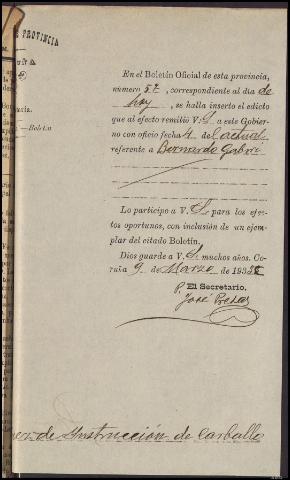 PROVINCIA
En el Boletín Oficial de esta provincia,
número 57, correspondiente al dia de
hoy, se halla inserto el edicto
que al efecto remitió V. S. a este Gobier-
no con oficio fecha 4 del actual
referente a Bernardo
Lo participo a V. S. para los efec-
tos oportunos, con inclusión de un ejem-
plar del citado Boletín.
Dios guarde a V. S. muchos años. Co-
ruña 9 de Marzo de 193
El Secretario,
José
de Instrucción de Carballo
Boletín